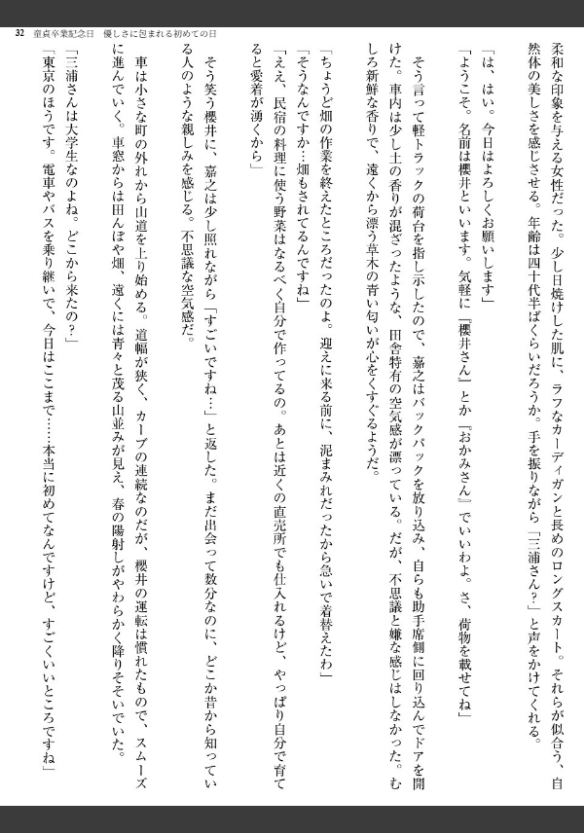 32 童貞卒業記念日 優しさに包まれる初めての日
柔和な印象を与える女性だった。少し日焼けした肌に、ラフなカーディガンと長めのロングスカート。それらが似合う、自
然体の美しさを感じさせる。年齢は四十代半ばくらいだろうか。手を振りながら「三浦さん?」と声をかけてくれる。
「は、はい。今日はよろしくお願いします」
「ようこそ。名前は櫻井といいます。気軽に『櫻井さん』とか『おかみさん』でいいわよ。さ、荷物を載せてね」
そう言って軽トラックの荷台を指し示したので、嘉之はバックパックを放り込み、自らも助手席側に回り込んでドアを開
けた。車内は少し土の香りが混ざったような、田舎特有の空気感が漂っている。だが、不思議と嫌な感じはしなかった。む
しろ新鮮な香りで、遠くから漂う草木の青い匂いが心をくすぐるようだ。
「ちょうど畑の作業を終えたところだったのよ。迎えに来る前に、泥まみれだったから急いで着替えたわ」
「そうなんですか…畑もされてるんですね」
「ええ、民宿の料理に使う野菜はなるべく自分で作ってるの。あとは近くの直売所でも仕入れるけど、やっぱり自分で育て
ると愛着が湧くから」
そう笑う櫻井に、嘉之は少し照れながら「すごいですね…」と返した。まだ出会って数分なのに、どこか昔から知ってい
る人のような親しみを感じる。不思議な空気感だ。
車は小さな町の外れから山道を上り始める。道幅が狭く、カーブの連続なのだが、櫻井の運転は慣れたもので、スムーズ
に進んでいく。車窓からは田んぼや畑、遠くには青々と茂る山並みが見え、春の陽射しがやわらかく降りそそいでいた。
「三浦さんは大学生なのよね。どこから来たの?」
「東京のほうです。電車やバスを乗り継いで、今日はここまで……本当に初めてなんですけど、すごくいいところですね」